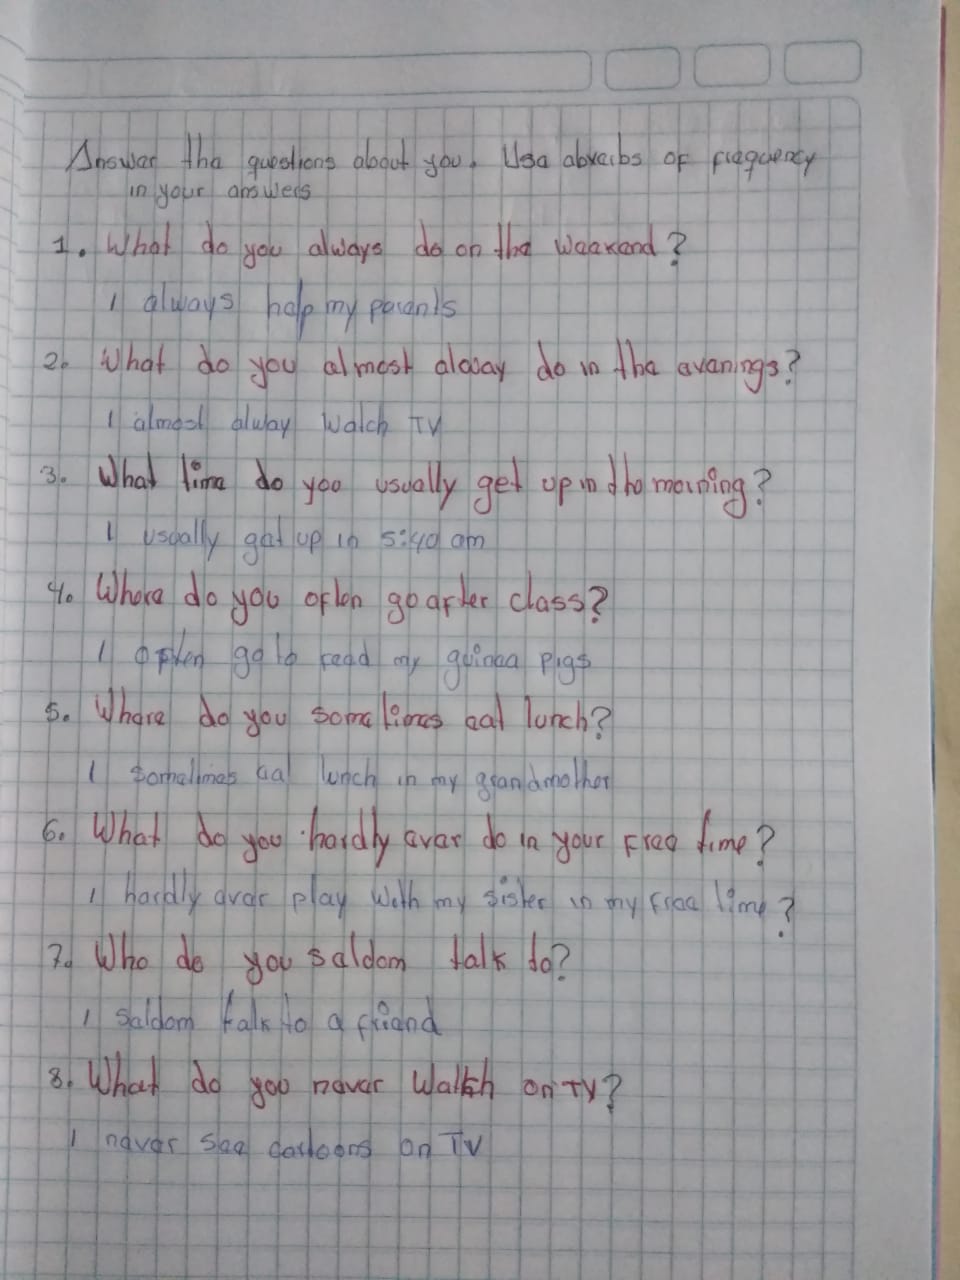 Answar tha questions about you. Usa abvarbs of fraquency
in your answers
1. What do you always do on tha waakand?
I always halp my parants
2. What do you almost alway do in tha avanings?
I almost alway watch TV
3. What tima do you usually get up in tho morning?
I usually gat up in 5:40 am
4. Whora do you often go after class?
I often go to feed my guinaa pigs
5. Whara do you somatimas aat lunch?
I somatimas aat lunch in my grandmothar
6. What do you hardly avar do in your fraa time?
I hardly avar play with my sister in my fraa time?
7. Who do you saldom talk to?
I saldom talk to a friand
8. What do you navar watch on TV?
I navar saa cartoons on TV